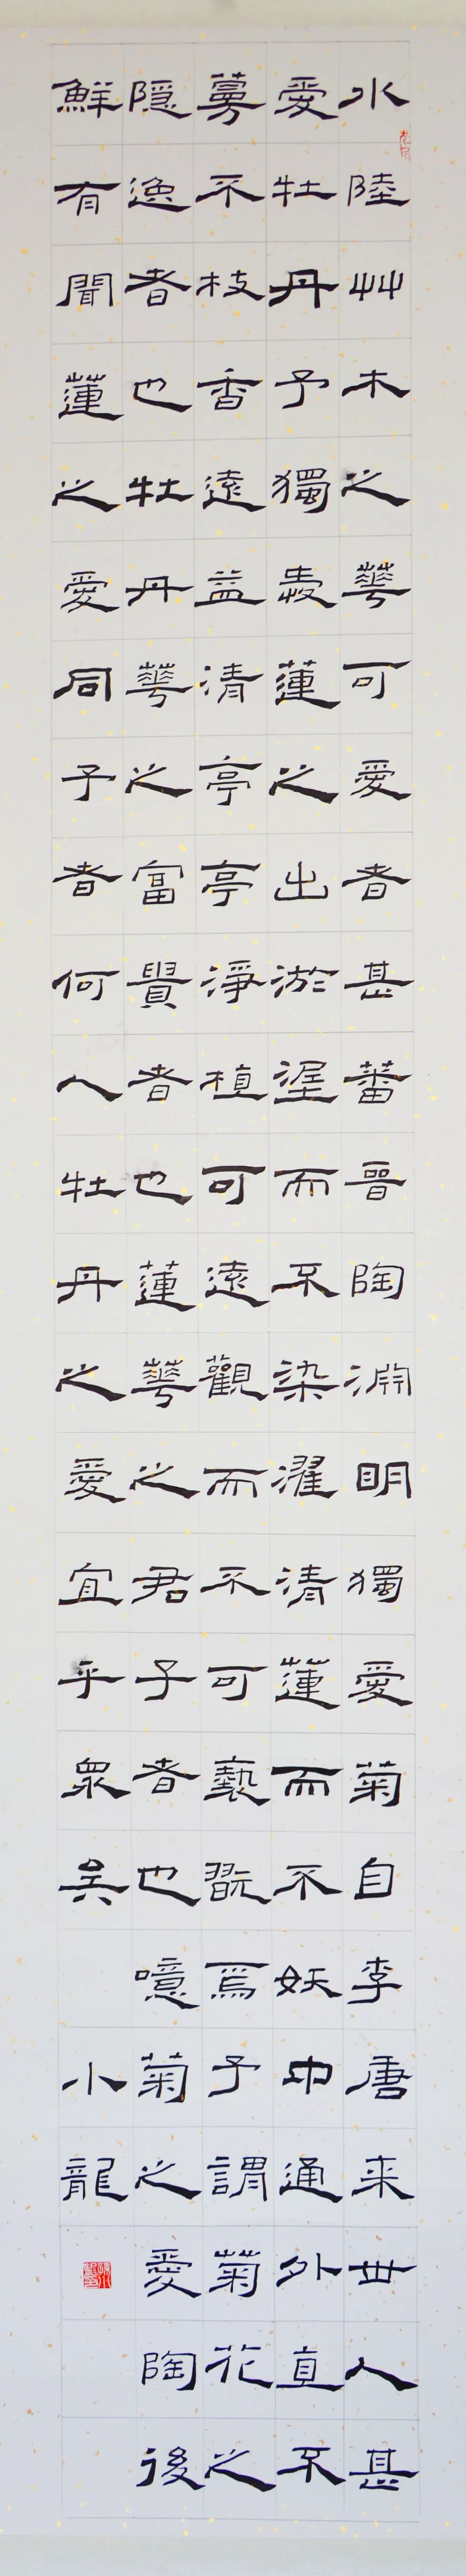 水陸艸木之華可愛者甚蕃晉陶淵明獨愛菊自李唐来世人甚
愛牡丹予獨愛蓮之出淤埿而不染濯清蓮而不妖中通外直不
蔓不枝香遠益清亭亭淨植可遠觀而不可褻翫焉予謂菊花之
隐逸者也牡丹華之富貴者也蓮華之君子者也噫菊之愛陶後
鮮有聞蓮之愛同予者何人牡丹之愛宜乎眾矣
小龍